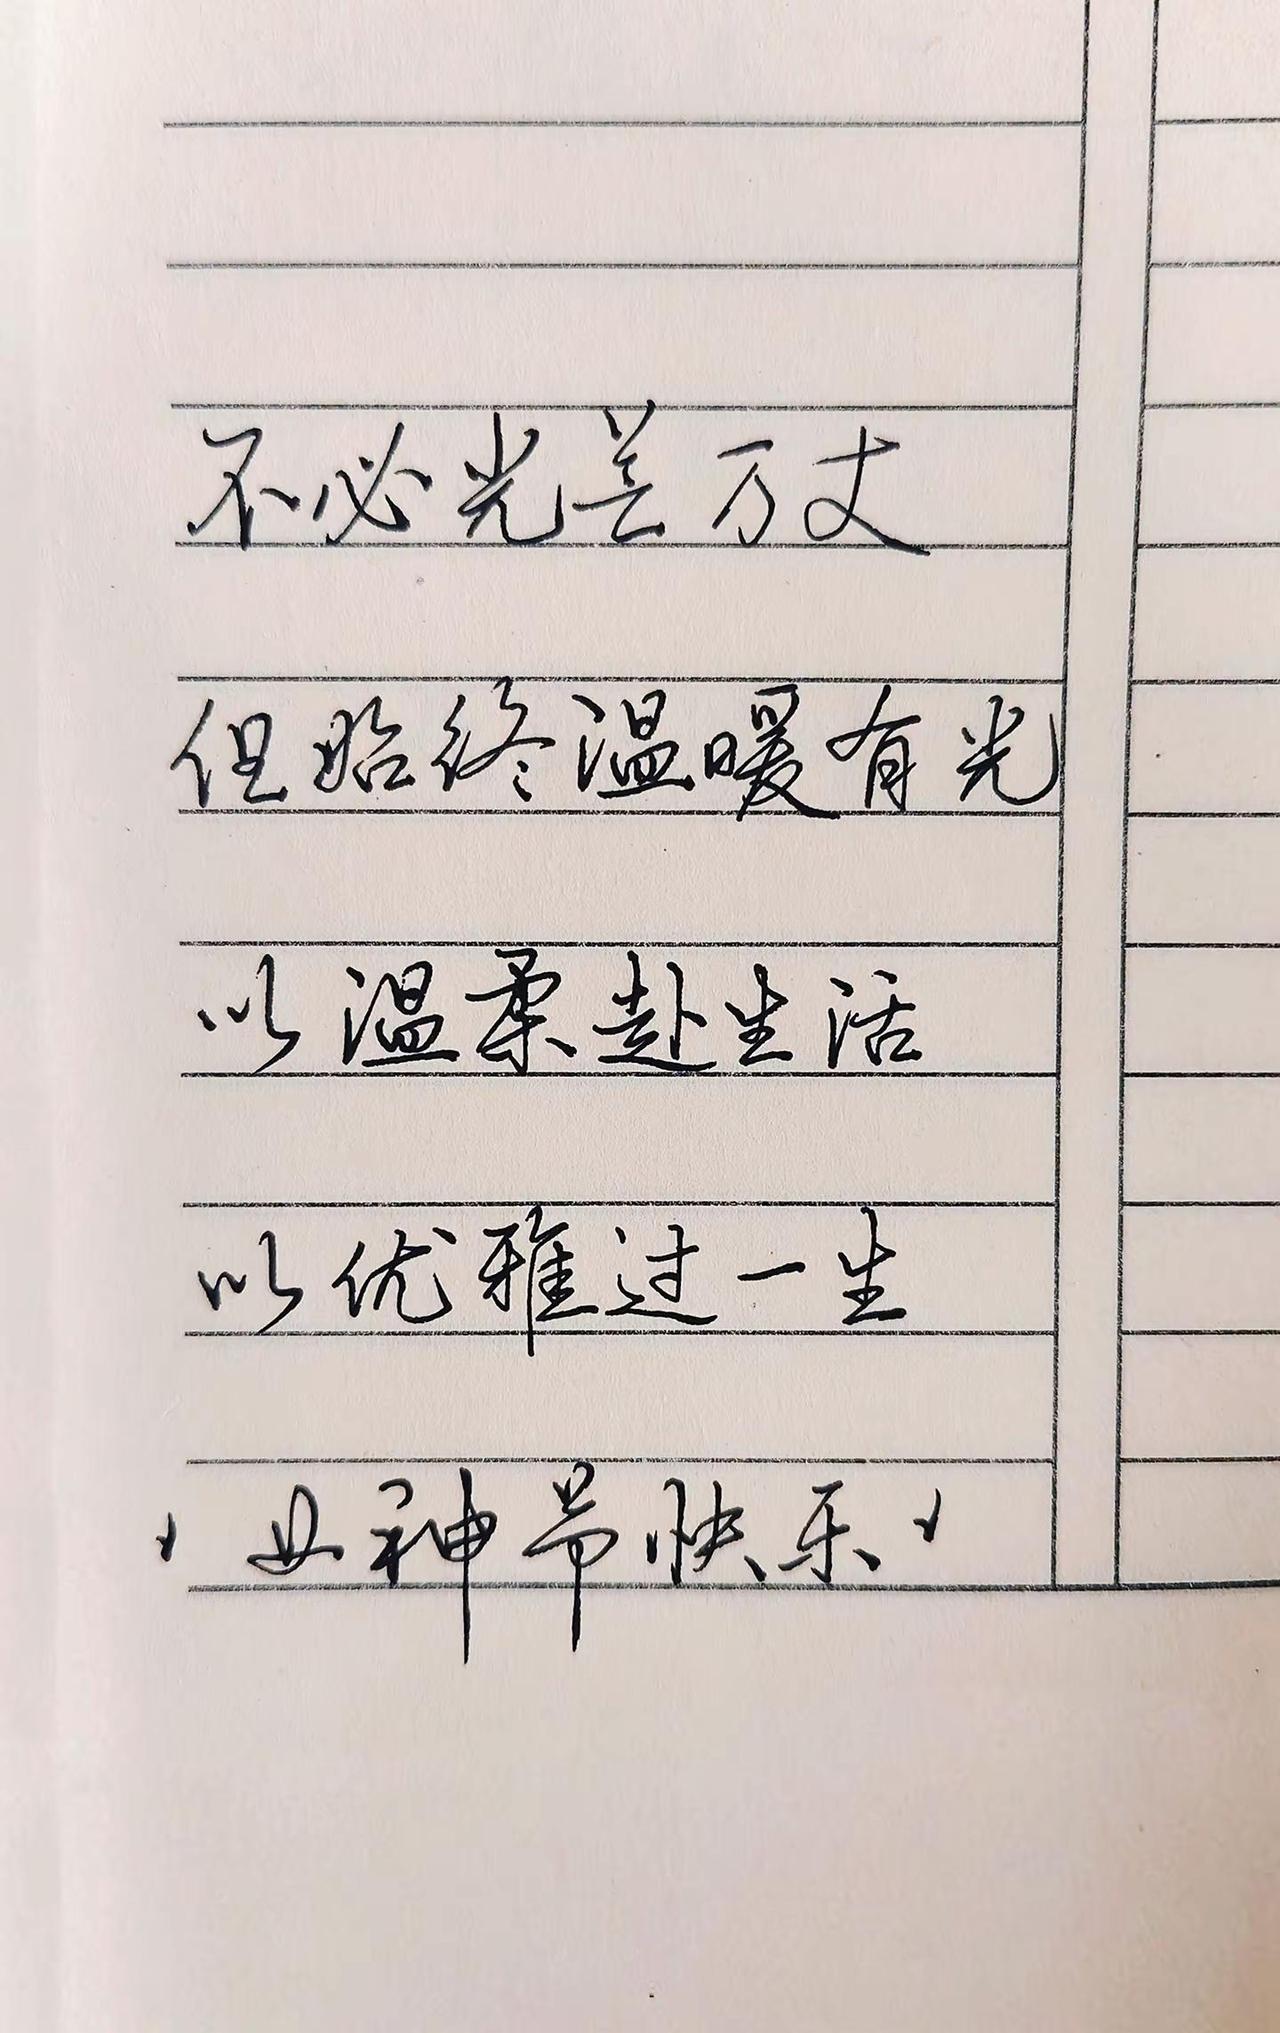 不必光芒万丈
但始终温暖有光
以温柔赴生活
以优雅过一生
、女神节快乐、